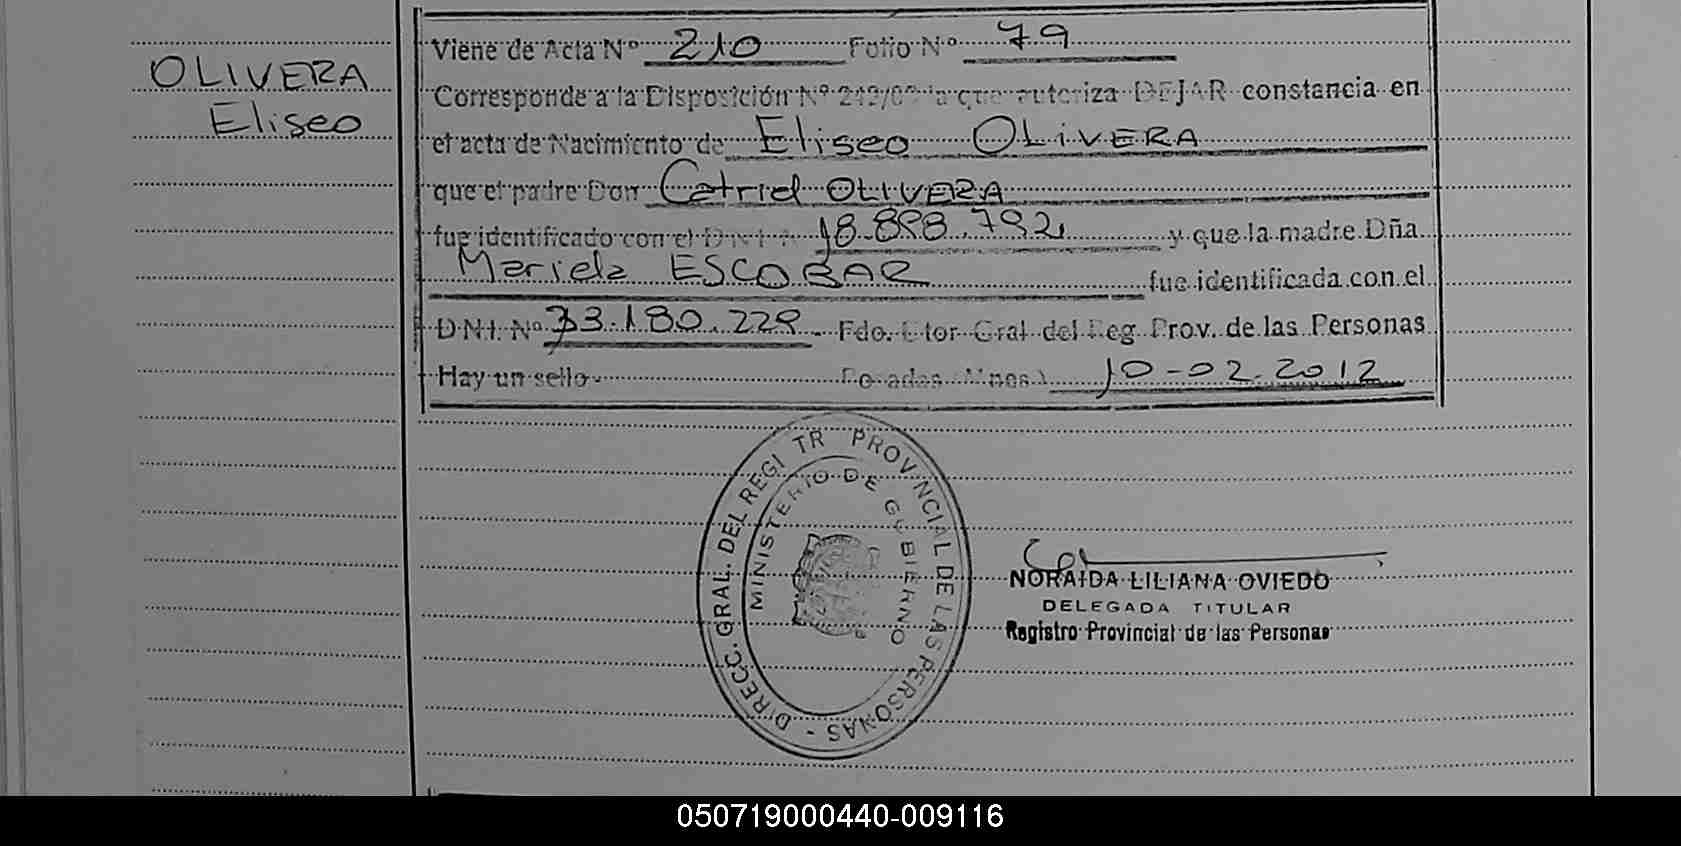 OLIVERA
Eliseo
Viene de Acta Nº 210 Folio Nº 79
Corresponde a la Disposición Nº la que autoriza DEJAR constancia en
el acta de Nacimiento de Eliseo OLIVERA
que el padre Don Catriel OLIVERA
fue identificado con el D N I y que la madre Dña
Mariela ESCOBAR fue identificada con el
D N I. Nº 33.180.229 - Fdo. Dtor Gral del Reg Prov. de las Personas
Hay un sello. Posadas (Mnes) 10-02.2012
DIRECC. GRAL. DEL REGI TR PROVINCIAL DE LAS PERSONAS -
MINISTERIO DE GOBIERNO
NORAIDA LILIANA OVIEDO
DELEGADA TITULAR
Registro Provincial de las Personas
050719000440-009116